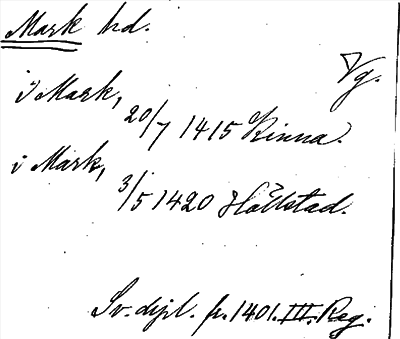 Mark hd.
Vg.
i Mark,
20/7 1415 Kinna.
i Mark,
3/5 1420 Hállstad.
Sv. dipl. fr. 1401. III. Reg.